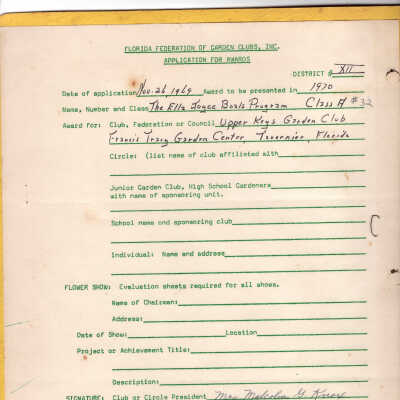 FLORIDA FEDERATION OF GARDEN CLUBS, INC.
APPLICATION FOR AWARDS
DISTRICT # XII
Date of application Nov. 26, 1969 Award to be presented in 1970
Name, Number and Class The Ella Joyce Program Class A #32
Award for: Club, Federation or Council Upper Keys Garden Club
Francis Tracy Garden Center, Tavernier, Florida
Circle: (list name of club affiliated with
Junior Garden Club, High School Gardeners
with name of sponsoring unit.
School name and sponsoring club
Individual: Name and address
FLOWER SHOW: Evaluation sheets required for all shows.
Name of Chairman:
Address:
Date of Show: Location
Project or Achievement Title:
Description:
SIGNATURE: Club or Circle President Mrs Malcolm G Knox